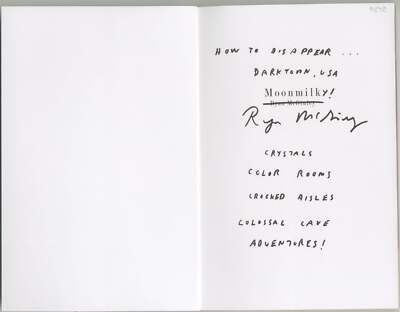 HOW TO DISAPPEAR ...
DARKTOWN, USA
Moonmilky!
Ryan McGinley
Ryan McGinley
CRYSTALS
COLOR ROOMS
CROOKED AISLES
COLOSSAL CAVE
ADVENTURES!